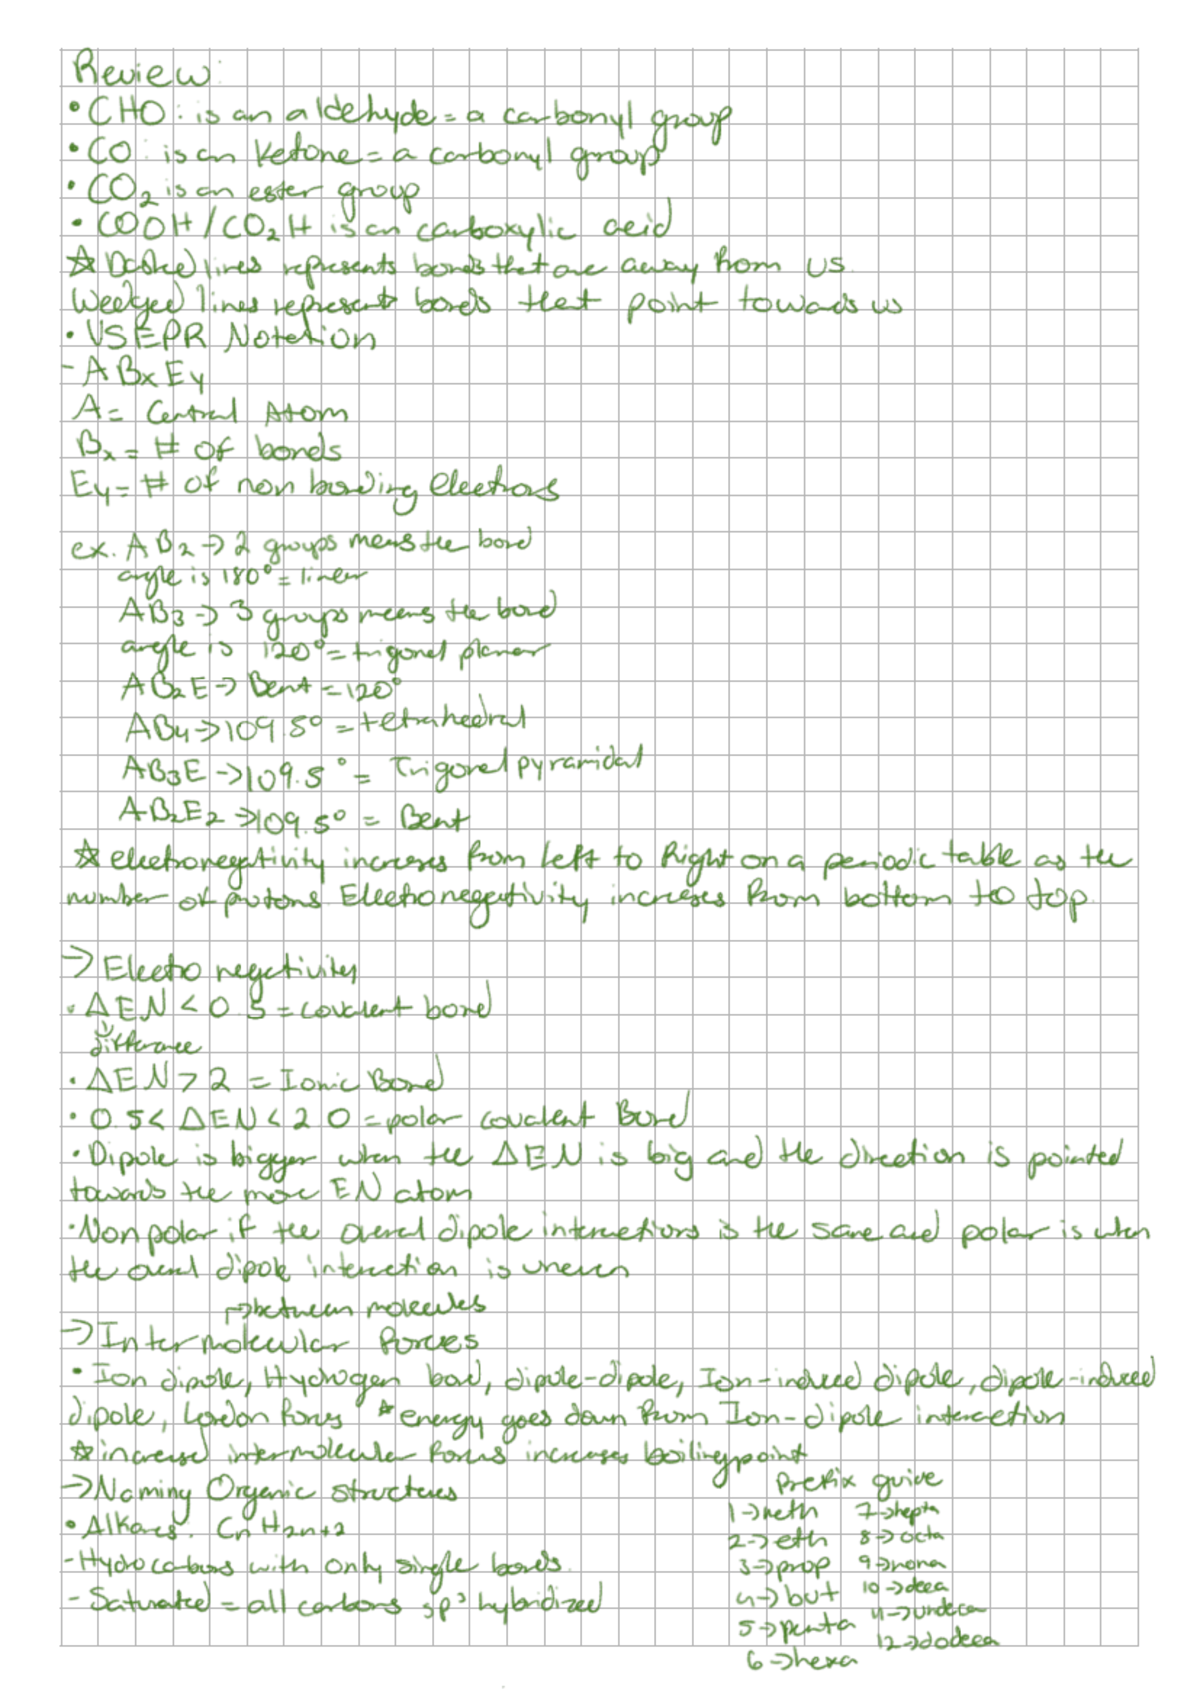 Review:
• CHO: is an aldehyde = a carbonyl group
• CO: is an Ketone = a carbonyl group
• CO₂ is an ester group
• COOH/CO₂H is an carboxylic acid
☆ Dashed lines represents bonds that are away from us.
Wedged lines represent bonds that point towards us
• VSEPR Notation
- ABxEy
A = Central Atom
Bx = # of bonds
Ey = # of non bonding electrons
ex. AB₂ → 2 groups means the bond
angle is 180° = linear
AB₃ → 3 groups means the bond
angle is 120° = trigonal planar
AB₂E → Bent = 120°
AB₄ → 109.5° = tetrahedral
AB₃E → 109.5° = Trigonal pyramidal
AB₂E₂ → 109.5° = Bent
☆ electronegativity increases from left to Right on a periodic table as the
number of protons. Electronegativity increases from bottom to top.
→ Electronegativity
• ΔEN < 0.5 = covalent bond
difference
• ΔEN > 2 = Ionic Bond
• 0.5 < ΔEN < 2.0 = polar covalent Bond
• Dipole is bigger when the ΔEN is big and the direction is pointed
towards the more EN atom
• Non polar if the overal dipole interactions is the same and polar is when
the overal dipole interaction is uneven
→ between molecules
→ Intermolecular Forces
• Ion dipole, Hydrogen bond, dipole-dipole, Ion-induced dipole, dipole-induced
dipole, London Forces * energy goes down from Ion-dipole interaction
☆ increased intermolecular forces increases boiling point
→ Naming Organic structures
• Alkanes: CnH2n+2
- Hydrocarbons with only single bonds.
- Saturated = all carbons sp³ hybridized
Prefix guide
1 → meth
2 → eth
3 → prop
4 → but
5 → penta
6 → hexa
7 → hepta
8 → octa
9 → nona
10 → deca
11 → undeca
12 → dodeca